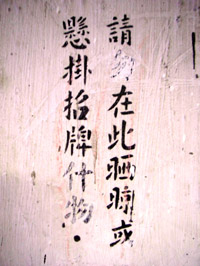 請勿在此晒晾或
懸掛招牌什物.